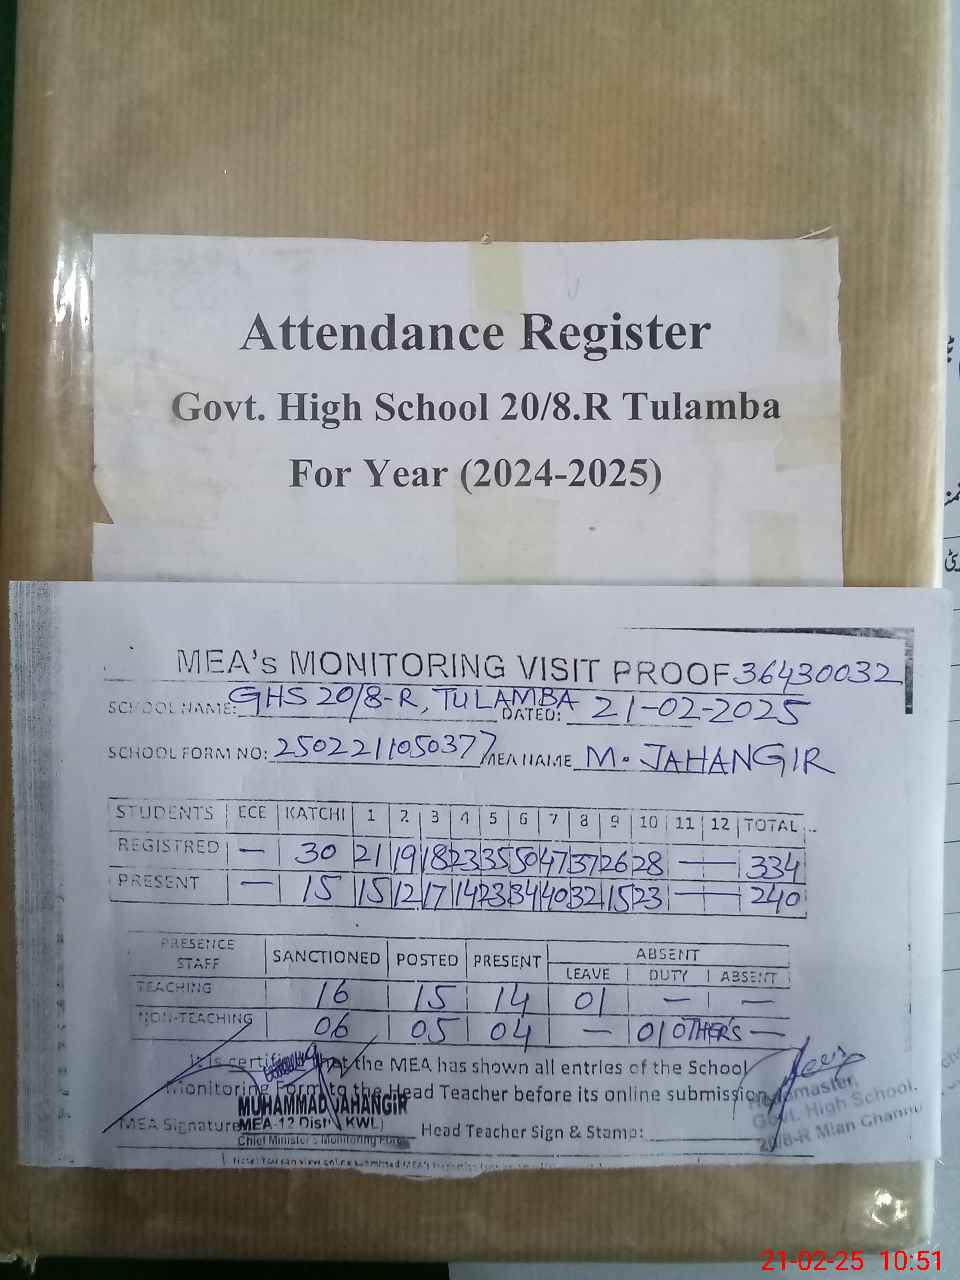 Attendance Register
Govt. High School 20/8.R Tulamba
For Year (2024-2025)
MEA's MONITORING VISIT PROOF 36430032
SCHOOL NAME: GHS 20/8-R, TULAMBA DATED: 21-02-2025
SCHOOL FORM NO: 2502211050377 MEA NAME M. JAHANGIR
STUDENTS ECE KATCHI 1 2 3 4 5 6 7 8 9 10 11 12 TOTAL
REGISTRED — 30 21 19 18 23 35 50 47 37 26 28 — 334
PRESENT — 15 15 12 17 14 23 34 40 32 15 23 — 240
PRESENCE STAFF SANCTIONED POSTED PRESENT ABSENT
LEAVE DUTY ABSENT
TEACHING 16 15 14 01 — —
NON-TEACHING 06 05 04 — 01 OTHER'S —
It is certified that the MEA has shown all entries of the School
Monitoring Form to the Head Teacher before its online submission
MUHAMMAD JAHANGIR
MEA Signature MEA-12 Distt (KWL) Head Teacher Sign & Stamp:
Chief Minister's Monitoring Force
Headmaster,
Govt. High School,
20/8-R Mian Channu
21-02-25 10:51